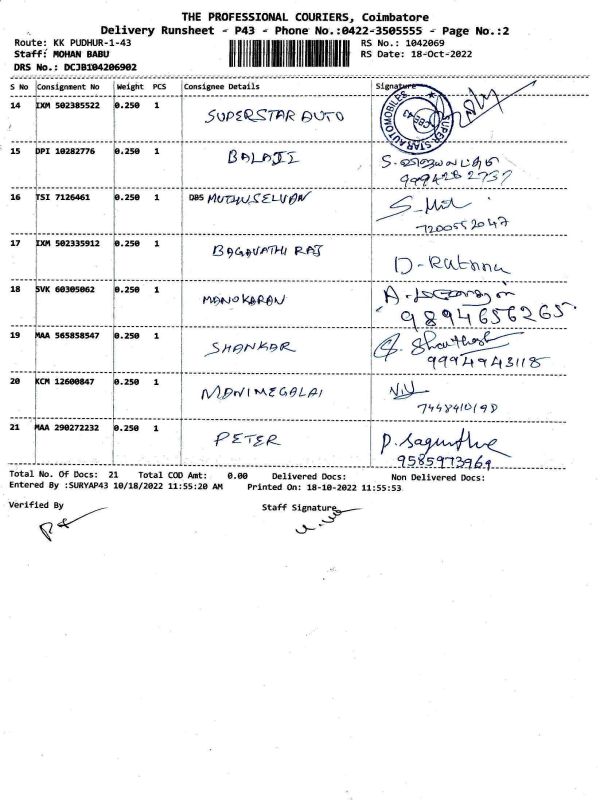 THE PROFESSIONAL COURIERS, Coimbatore
Delivery Runsheet - P43 - Phone No.:0422-3505555 - Page No.:2
Route: KK PUDHUR-1-43 RS No.: 1042069
Staff: MOHAN BABU RS Date: 18-Oct-2022
DRS No.: DCJB104206902
S No Consignment No Weight PCS Consignee Details Signature
14 IXM 502385522 0.250 1 SUPERSTAR AUTO
SUPER STAR AUTOMOBILES CBE-43
15 DPI 10282776 0.250 1 BALAJI S.
9994282737
16 TSI 7126461 0.250 1 DBS MUTHUSELVAN
7200552047
17 IXM 502335912 0.250 1 BAGAVATHI RAJ D-Ratnna
18 SVK 60305062 0.250 1 MANOKARAN A.
9894656265
19 MAA 565858547 0.250 1 SHANKAR
9994943118
20 KCM 12600847 0.250 1 MANIMEGALAI
7448410198
21 MAA 290272232 0.250 1 PETER
9585973969
Total No. Of Docs: 21 Total COD Amt: 0.00 Delivered Docs: Non Delivered Docs:
Entered By :SURYAP43 10/18/2022 11:55:20 AM Printed On: 18-10-2022 11:55:53
Verified By Staff Signature